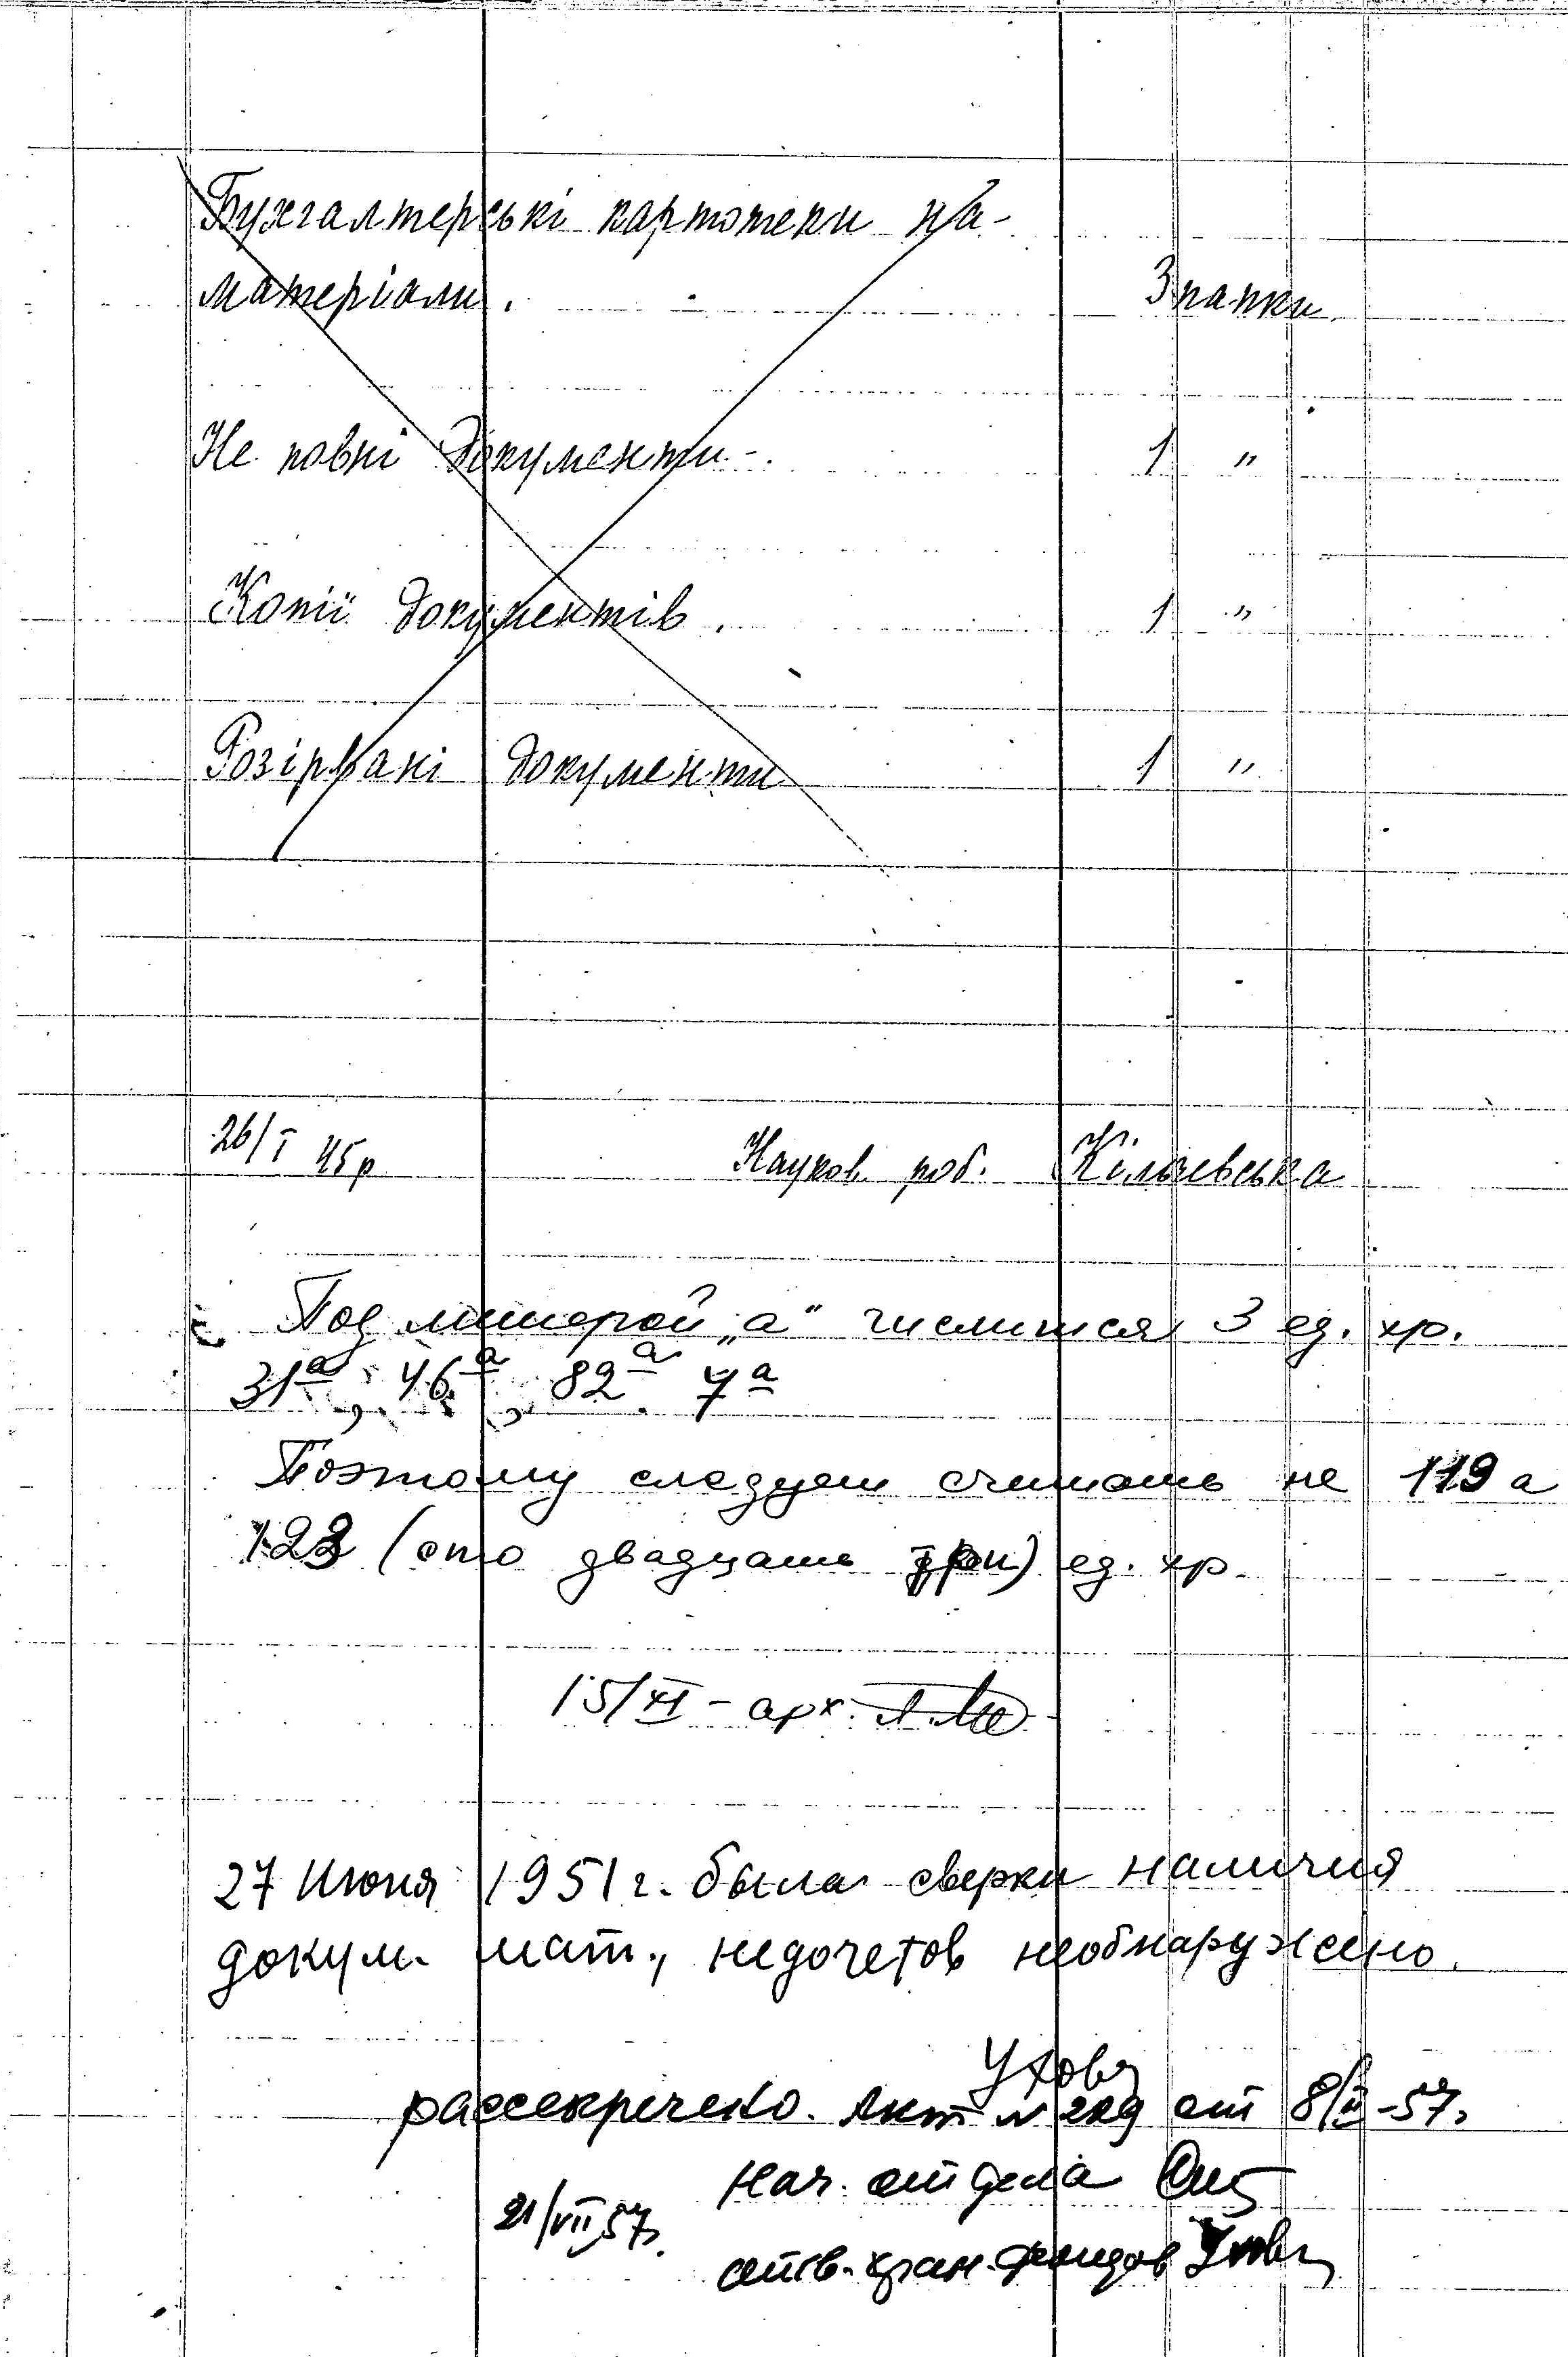 Бухгалтерські картотеки на-
матеріали. 3 папки.
Не повні документи -. 1 "
Копії документів. 1 "
Розірвані документи 1 "
26/I 45р Науков. роб. Кільчевська
Под литерой „а“ числится 3 ед. хр.
31а, 46а, 82а. 7а
Поэтому следует считать не 119 а
123 (сто двадцать три) ед. хр.
15/XI - арх.
27 Июня 1951 г. была сверки наличия
докум. мат., недочетов необнаружено.
рассекречено. Акт № от 8/II-57г.
Нач. отдела
21/VII 57г.
отв. хран. фондов